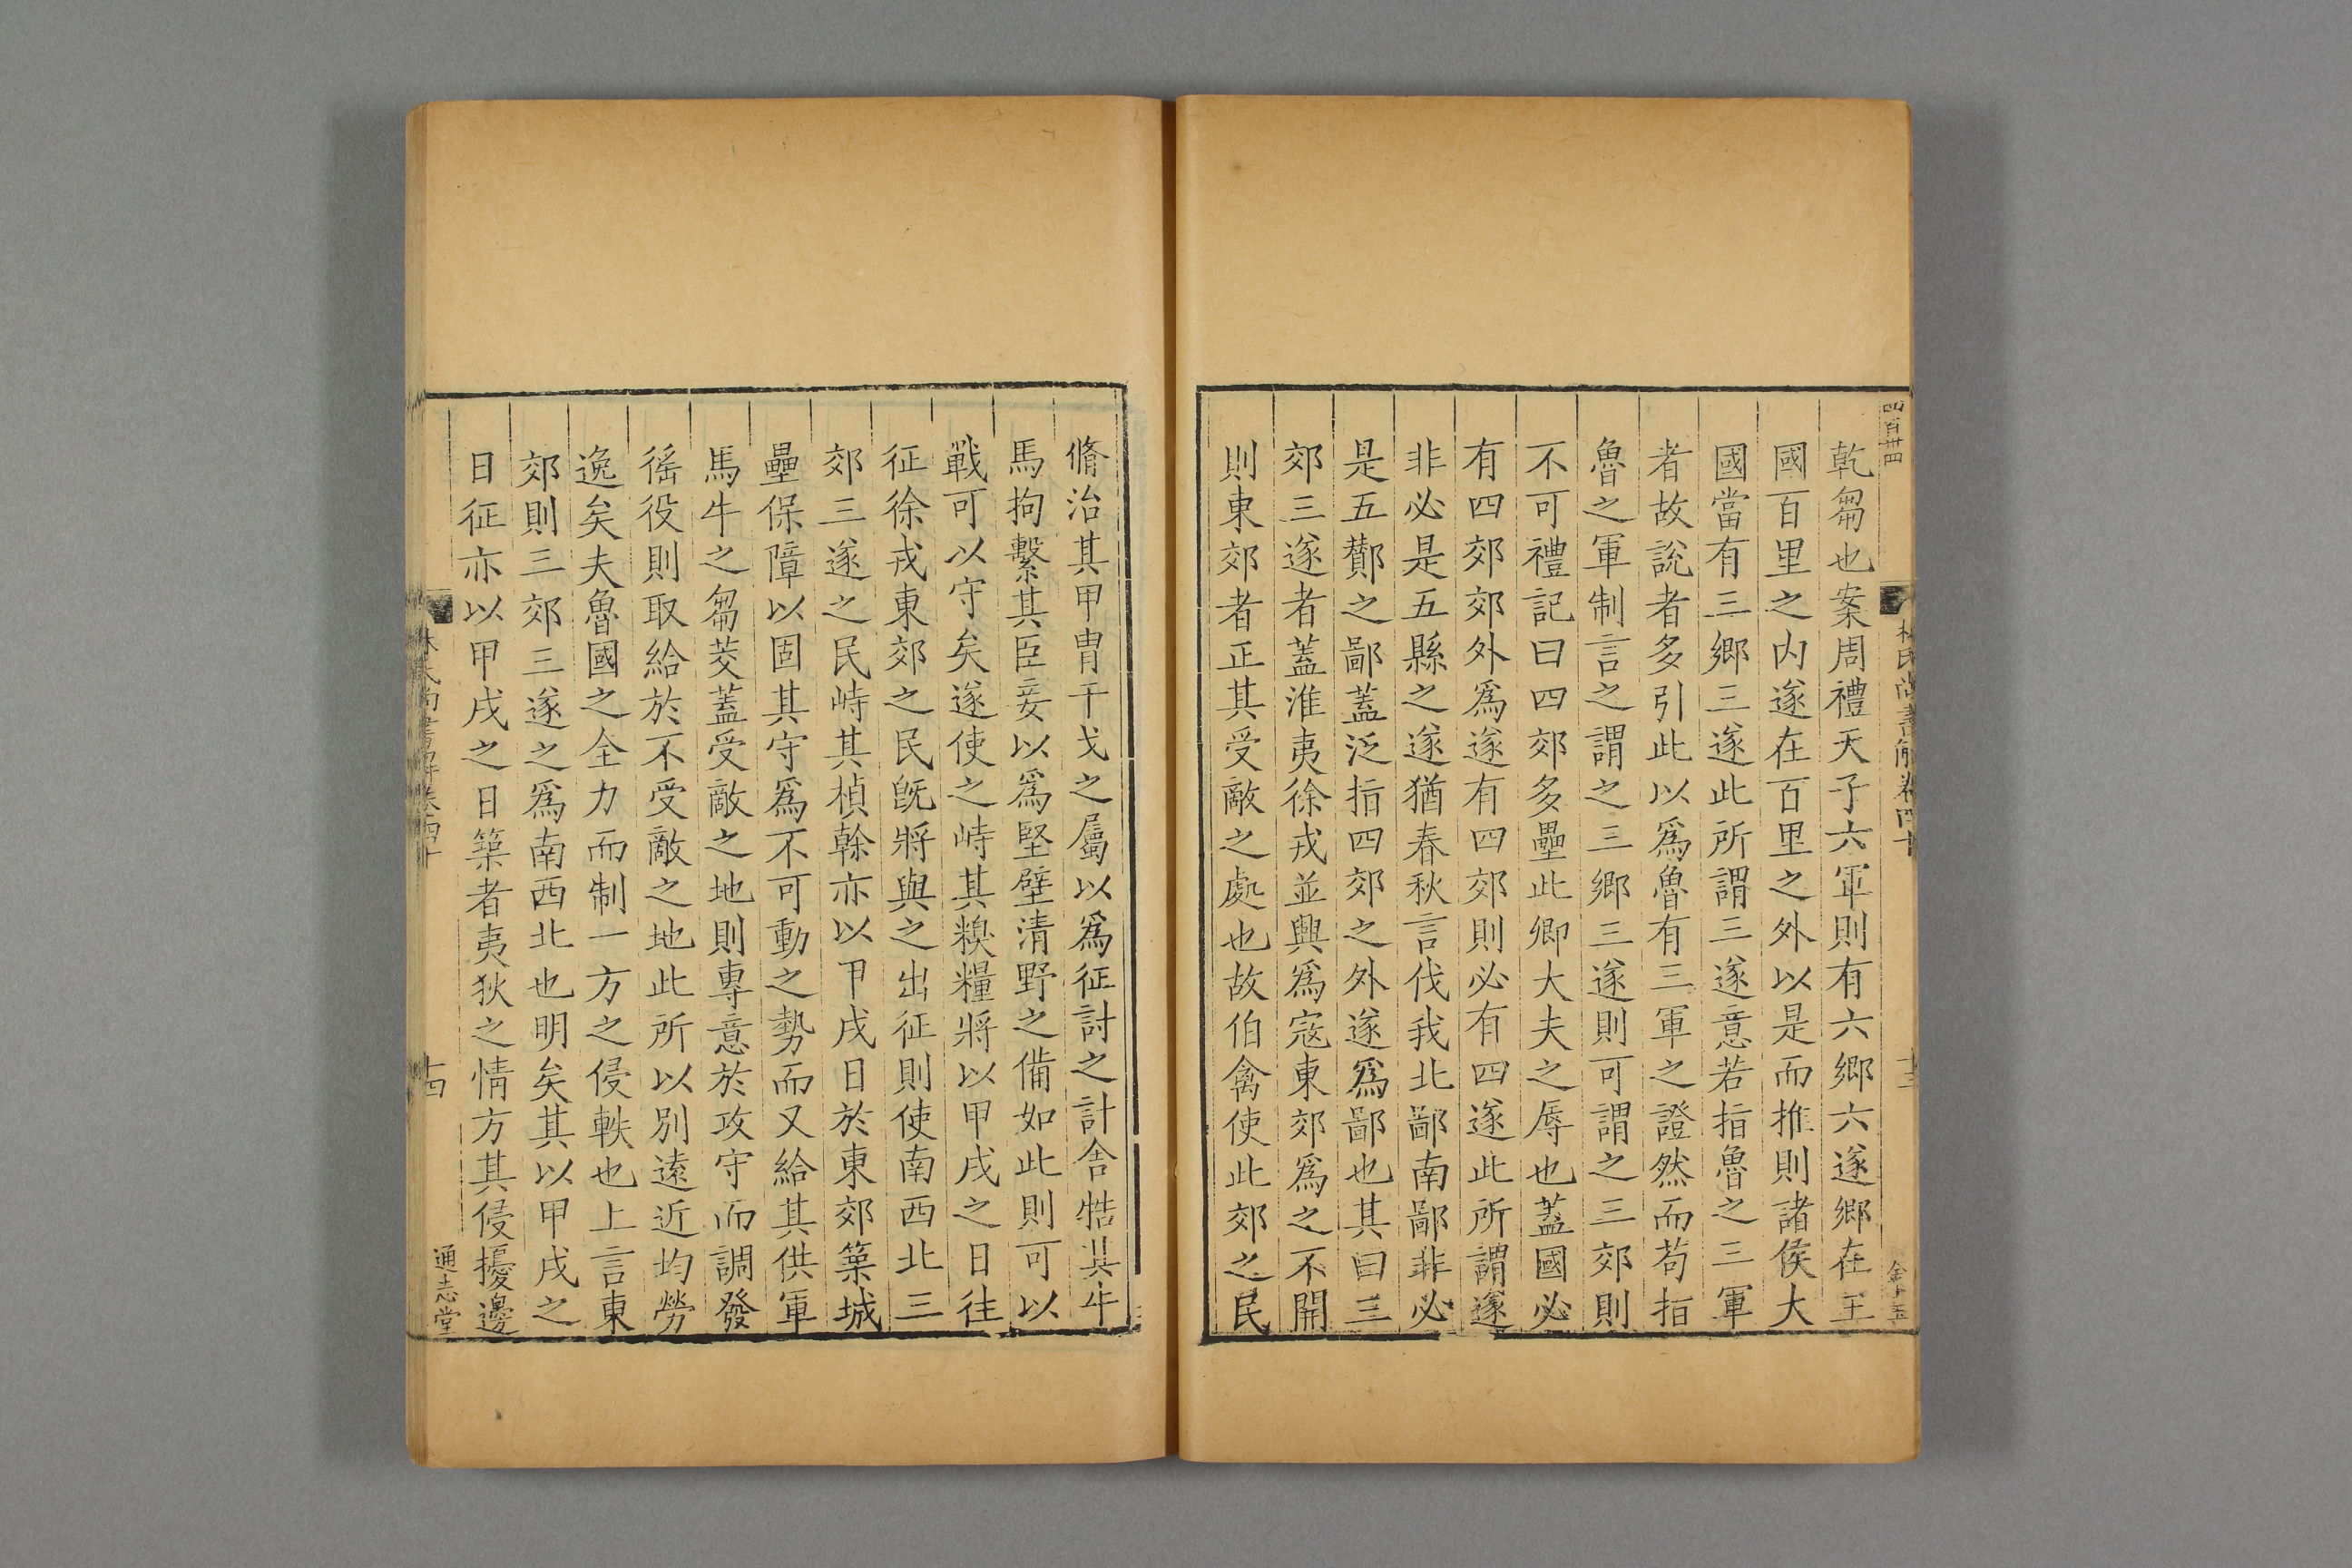 四百廿四
林氏尚書解卷四十
十三
金士玉
乾芻也案周禮天子六軍則有六鄉六遂鄉在王
國百里之内遂在百里之外以是而推則諸侯大
國當有三鄉三遂此所謂三遂意若指魯之三軍
者故説者多引此以爲魯有三軍之證然而苟指
魯之軍制言之謂之三鄉三遂則可謂之三郊則
不可禮記曰四郊多壘此卿大夫之辱也蓋國必
有四郊郊外爲遂有四郊則必有四遂此所謂遂
非必是五縣之遂猶春秋言伐我北鄙南鄙非必
是五酇之鄙蓋泛指四郊之外遂爲鄙也其曰三
郊三遂者蓋淮夷徐戎並興爲寇東郊爲之不開
則東郊者正其受敵之處也故伯禽使此郊之民
脩治其甲冑干戈之屬以爲征討之計舍牿其牛
馬拘繫其臣妾以爲堅壁清野之備如此則可以
戰可以守矣遂使之峙其糗糧將以甲戌之日往
征徐戎東郊之民旣將與之出征則使南西北三
郊三遂之民峙其楨榦亦以甲戌日於東郊築城
壘保障以固其守爲不可動之勢而又給其供軍
馬牛之芻茭蓋受敵之地則專意於攻守而調發
徭役則取給於不受敵之地此所以別遠近均勞
逸矣夫魯國之全力而制一方之侵軼也上言東
郊則三郊三遂之爲南西北也明矣其以甲戌之
日征亦以甲戌之日築者夷狄之情方其侵擾邊
林氏尚書解卷四十
十四
通志堂